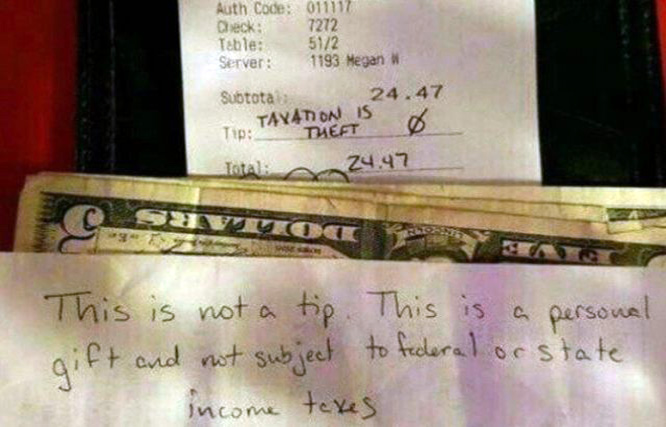 Auth Code: 011117
Check: 7272
Table: 51/2
Server: 1193 Megan W
Subtotal: 24.47
TAXATION IS
Tip: THEFT Ø
Total: 24.47
5 DOLLARS LINCOLN FIVE
This is not a tip. This is a personal
gift and not subject to federal or state
income taxes